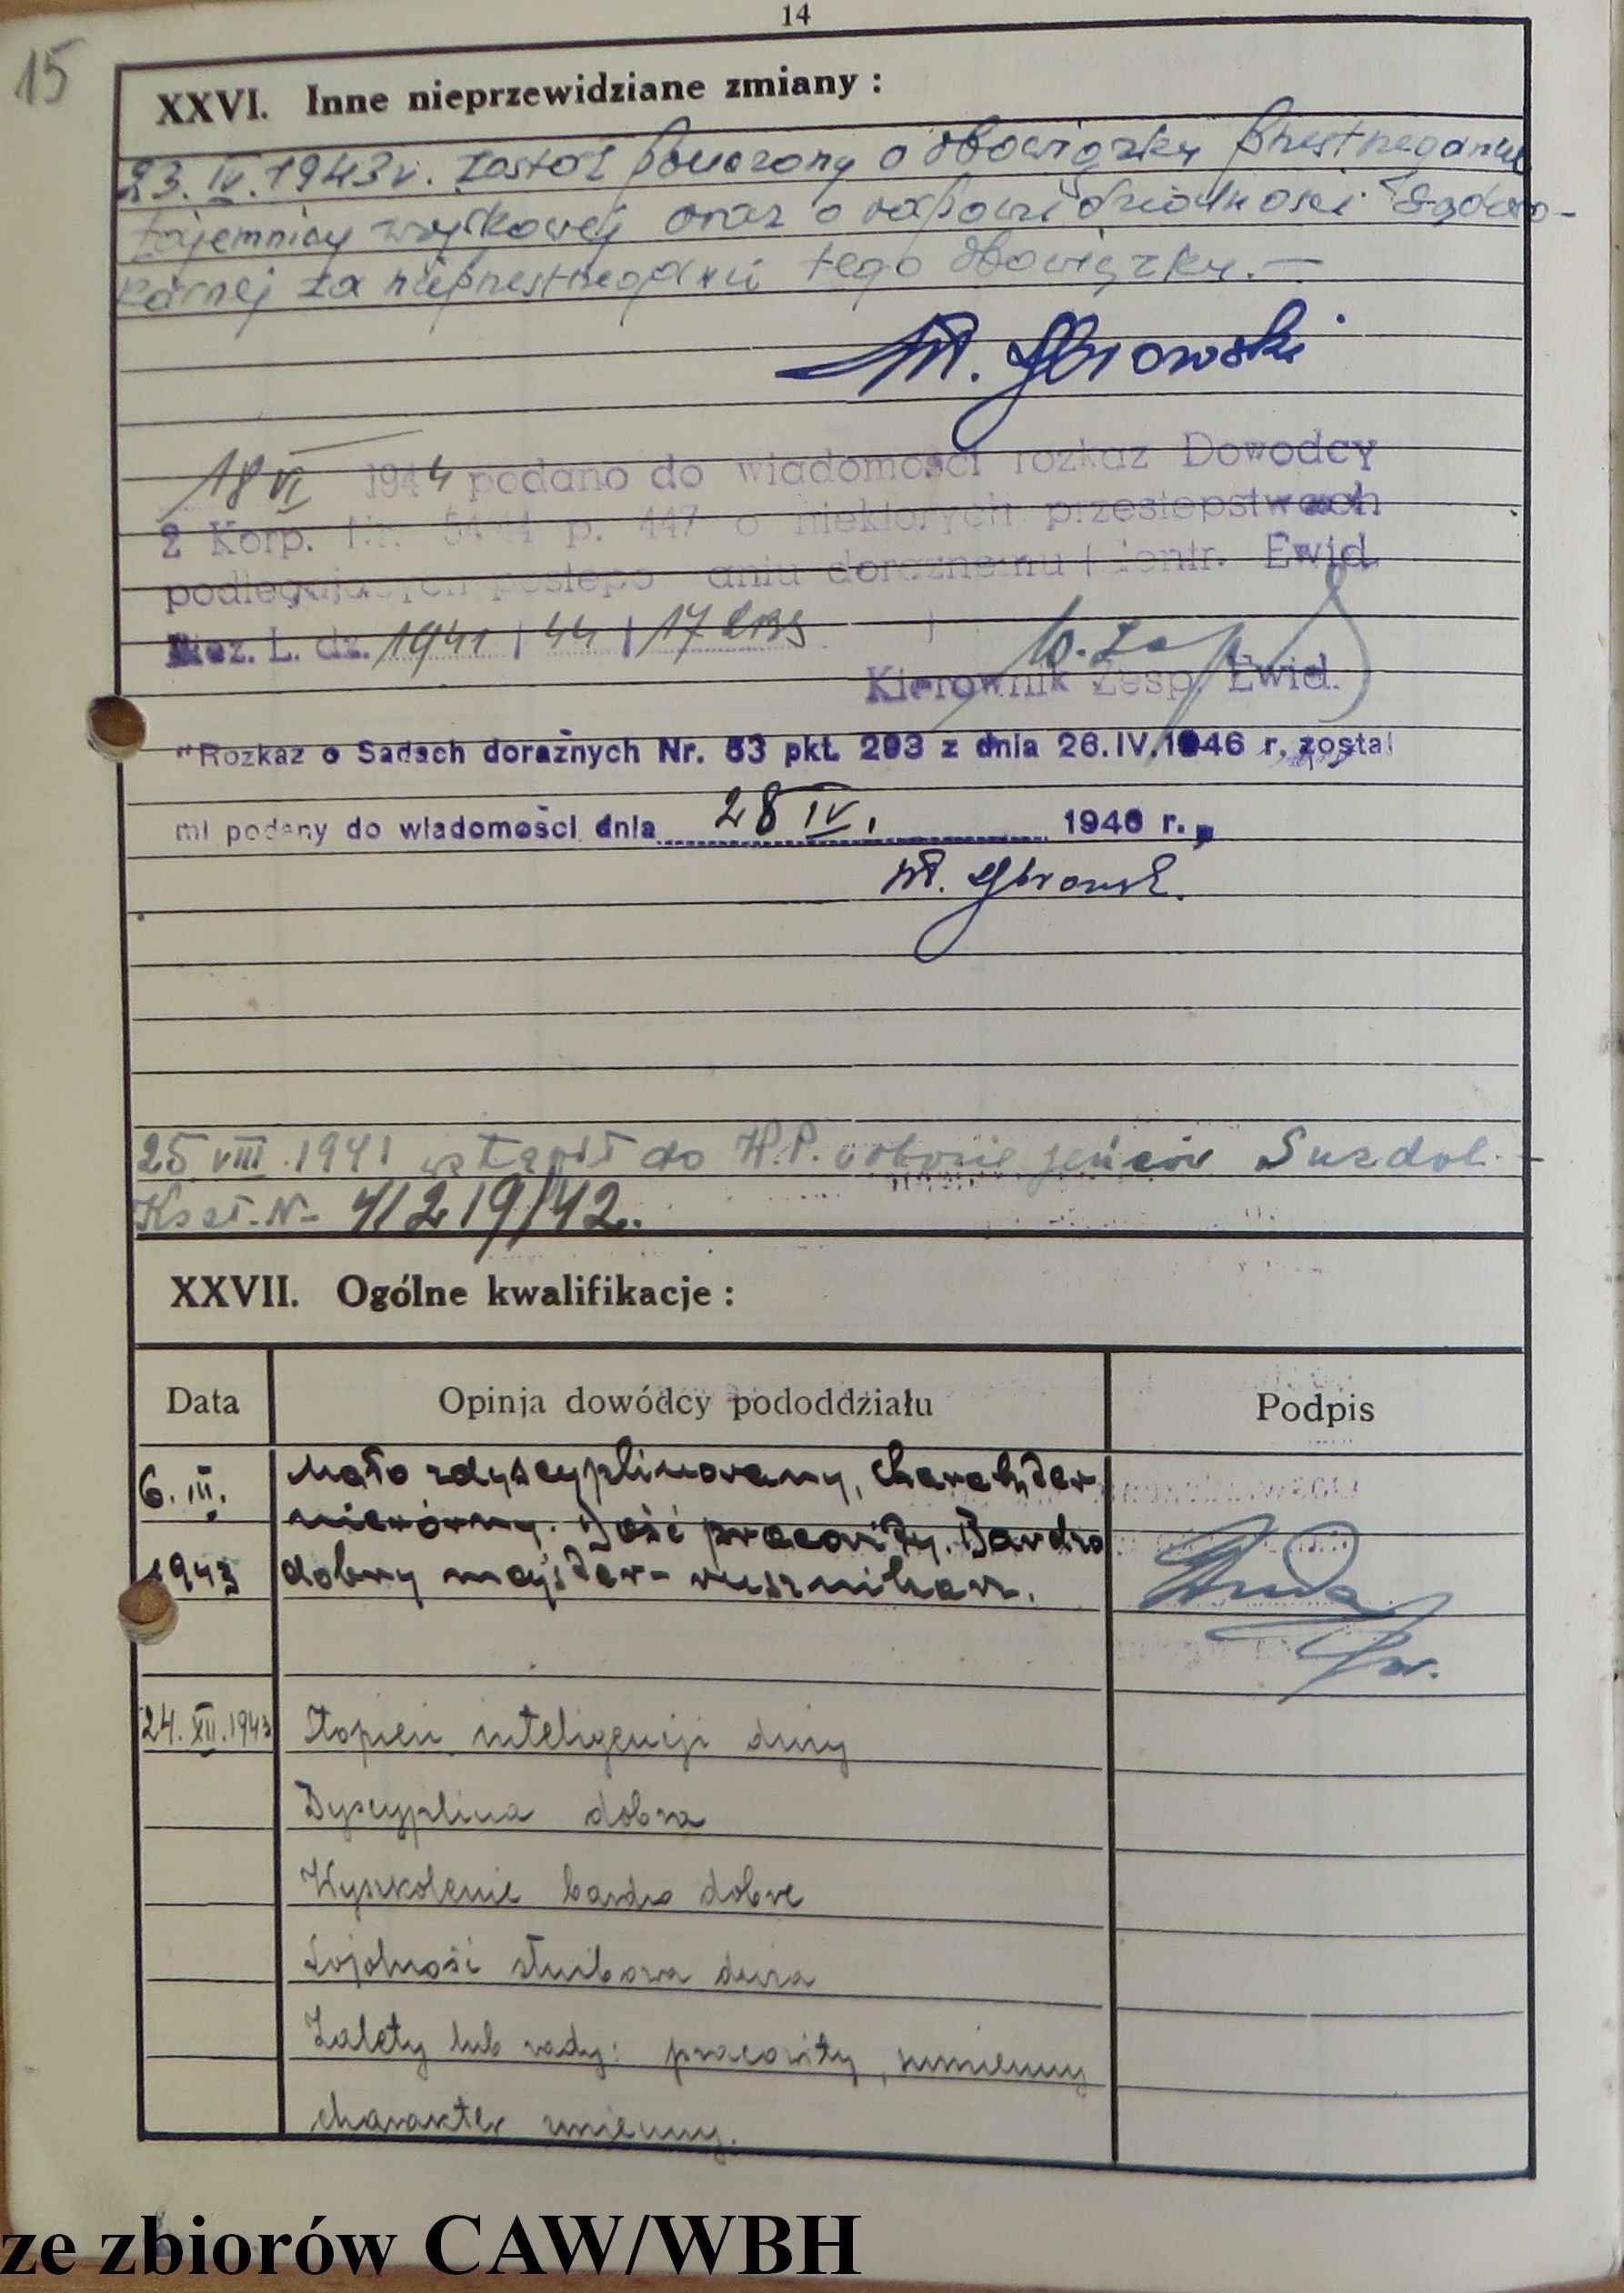 14
15
XXVI. Inne nieprzewidziane zmiany :
23. IV. 1943 r. został pouczony o obowiązku przestrzegania
tajemnicy wojskowej oraz o odpowiedzialności sądowo-
karnej za nieprzestrzeganie tego obowiązku. —
18 VI 1944 podano do wiadomości rozkaz Dowodcy
2 Korp. Nr. p. 447 o niektorych przestepstwach
podlegających doraznemu Ewid.
L. dz. 1941 / 44 / 17
Kierownik Zesp. Ewid.
"Rozkaz o Sadach doraźnych Nr. 53 pkt. 293 z dnia 26.IV.1946 r. został
mi podany do wiadomości dnia 28 IV. 1946 r."
25 VIII. 1941 wstąpił do W.P. w obozie jeńców Suzdal. —
412 19/42.
XXVII. Ogólne kwalifikacje :
Data Opinja dowódcy pododdziału Podpis
6. III. Mało zdyscyplinowany, charakter
nierówny. Dość pracowity. Bardzo
1943 dobry majster - rusznikarz.
24. XII. 1943 Stopień inteligencji duży
Dyscyplina dobra
Wyszkolenie bardzo dobre
Lojalność służbowa duża
Zalety lub wady: pracowity, sumienny
charakter zmienny.
ze zbiorów CAW/WBH